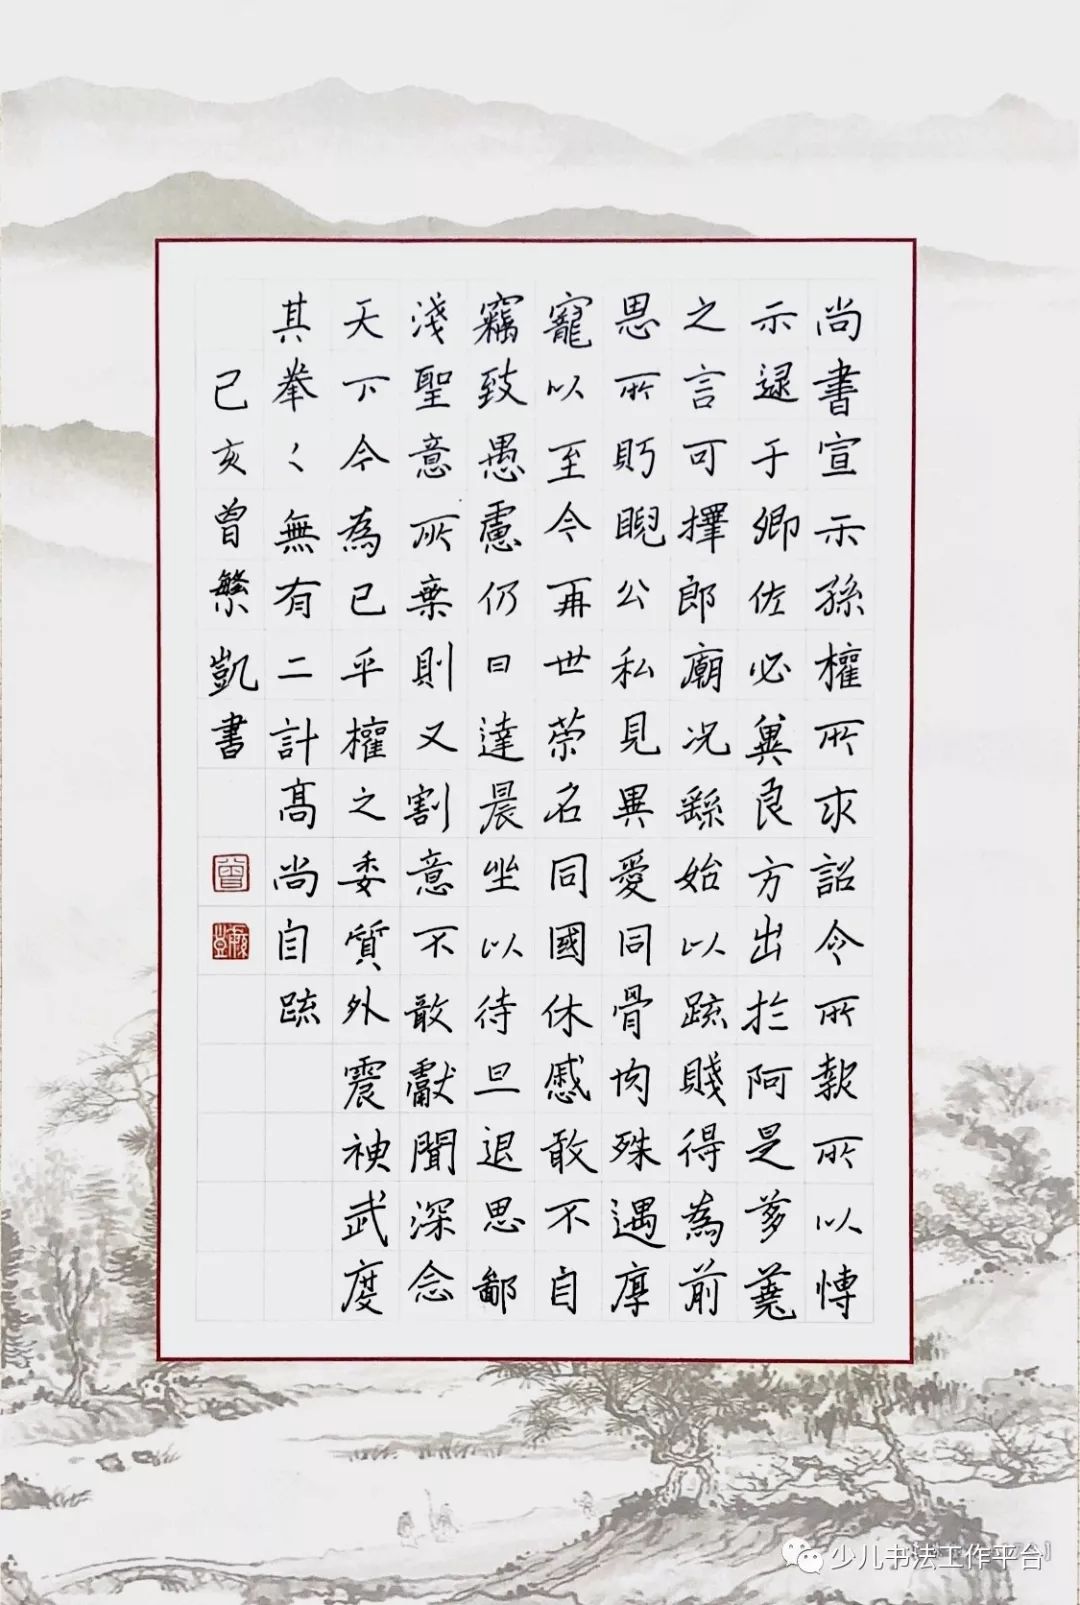 尚書宣示孫權所求詔令所報所以博
示逯于卿佐必冀良方出於阿是芻蕘
之言可擇郎廟况繇始以疏賤得為前
恩所眄睨公私見異愛同骨肉殊遇厚
寵以至今再世荣名同國休慼敢不自
竊致愚慮仍日達晨坐以待旦退思鄙
淺聖意所棄則又割意不敢獻聞深念
天下今為已平權之委質外震神武度
其拳〻無有二計高尚自疏
己亥曾繁凱書
曾
繁凱
少儿书法工作平台